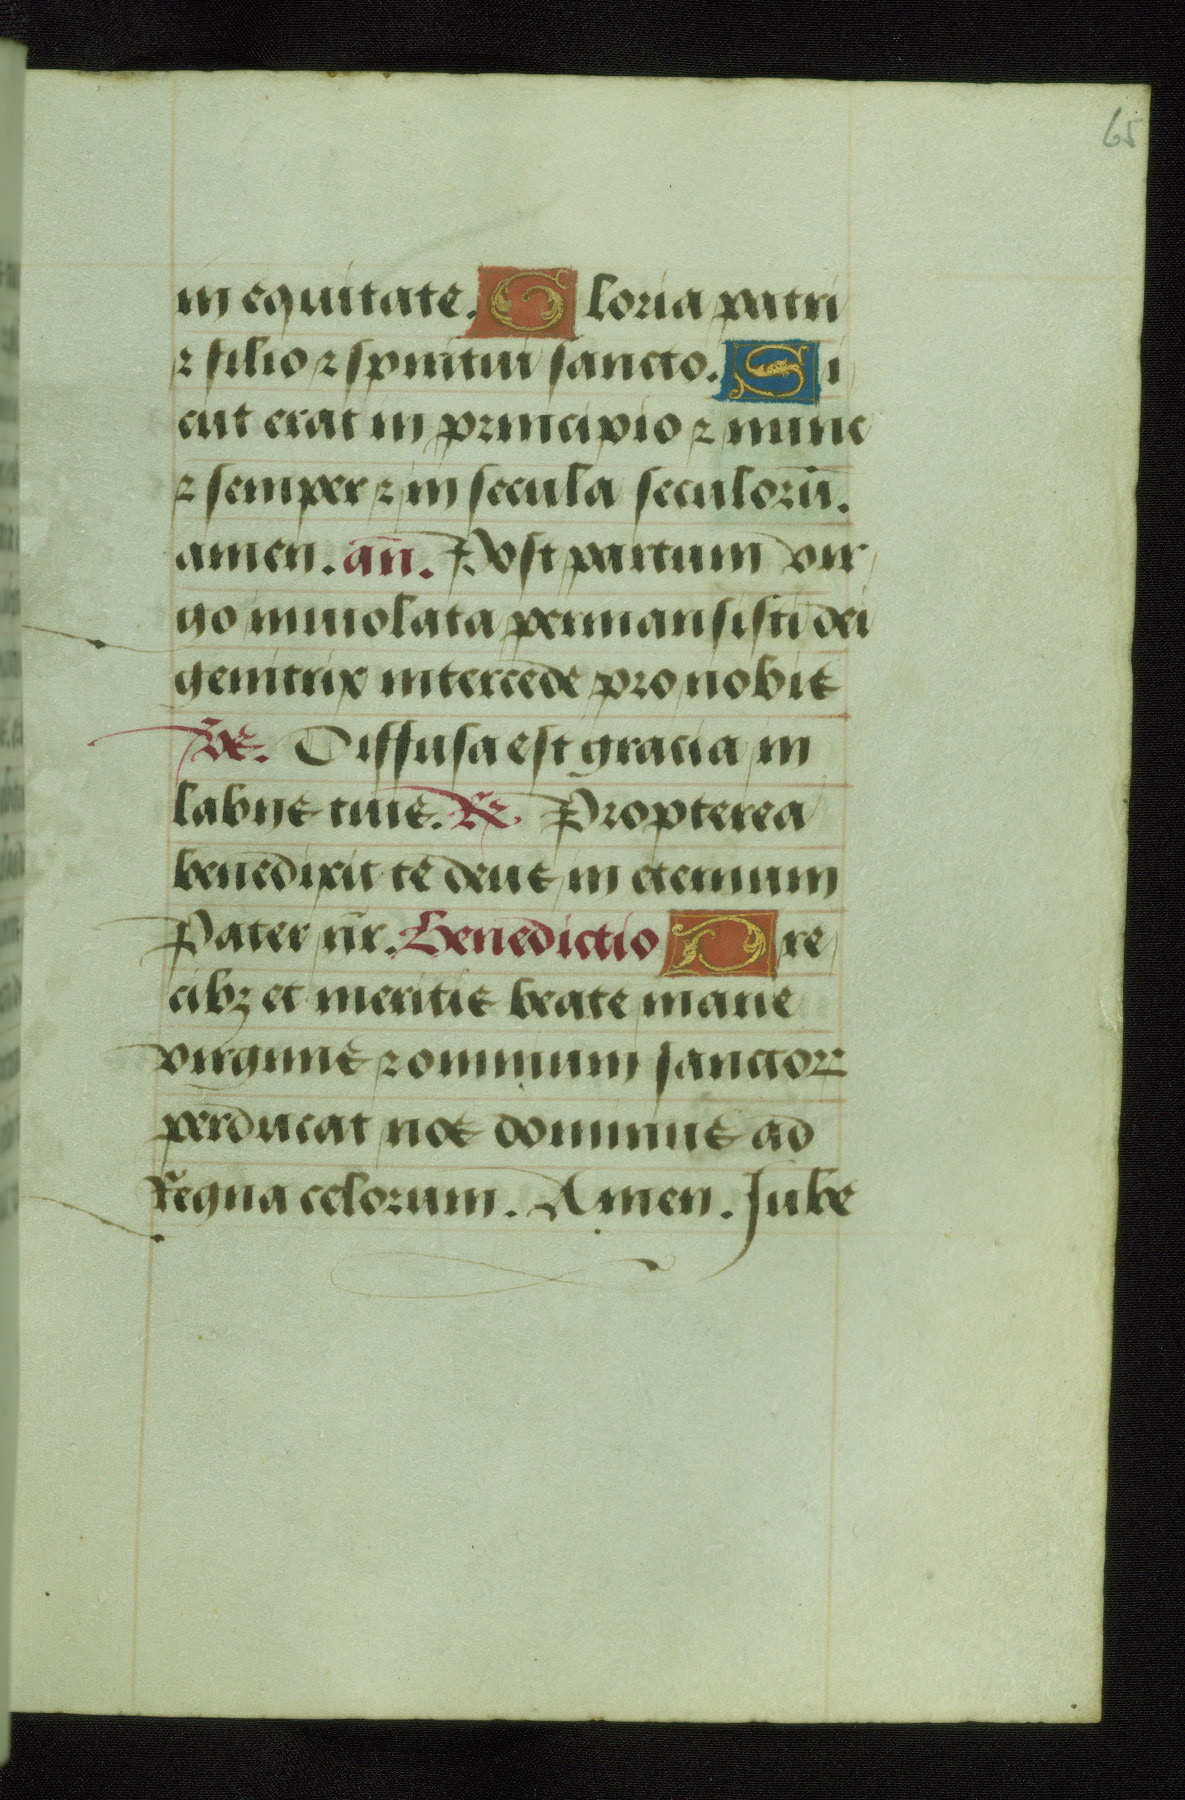 65
in equitate. Gloria patri
⁊ filio ⁊ spiritui sancto. Si
cut erat in principio ⁊ nunc
⁊ semper ⁊ in secula seculorū.
amen. an̄. Post partum vir
go inuiolata permansisti dei
genitrix intercede pro nobis
℣. Diffusa est gracia in
labiis tuis. ℟. Propterea
benedixit te deus in eternum
Pater nr̄. Benedictio Pre
cibꝫ et meritis beate marie
virginis ⁊ omnium sanctoꝝ
perducat nos dominus ad
Regna celorum. Amen. Jube